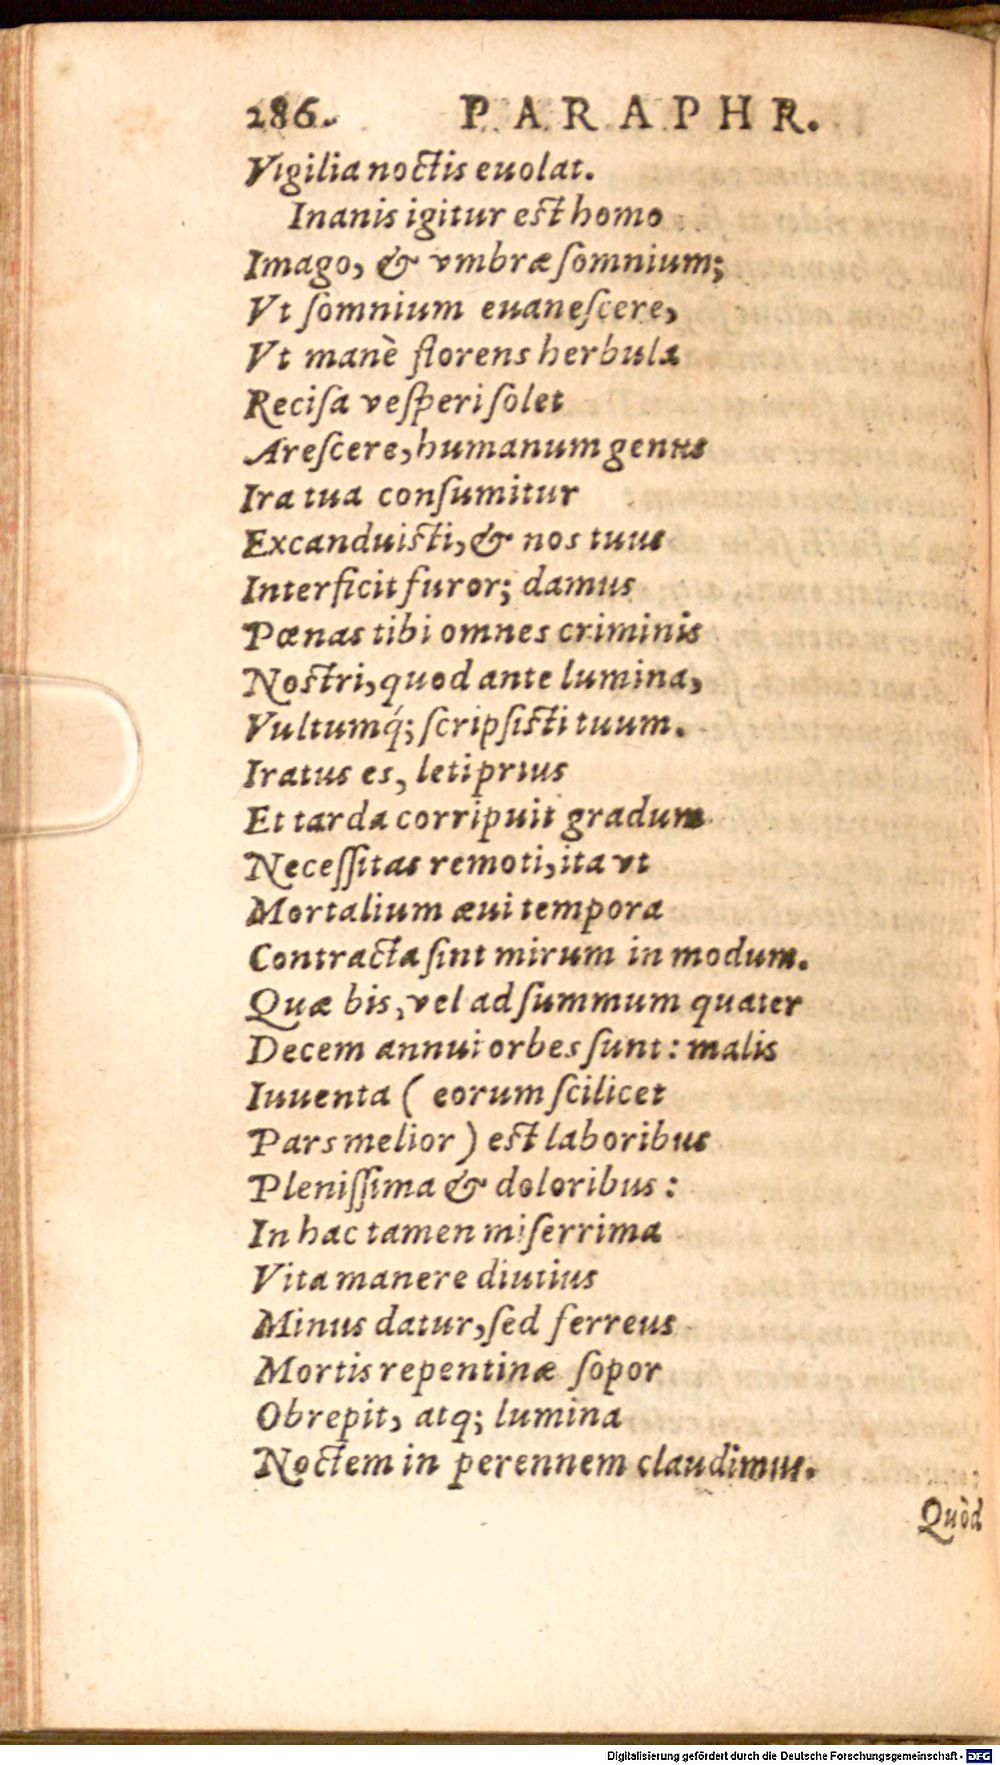 286. PARAPHR.
Vigilia noctis euolat.
Inanis igitur est homo
Imago, & vmbræ somnium;
Vt somnium euanescere,
Vt manè florens herbula
Recisa vesperi solet
Arescere, humanum genus
Ira tua consumitur
Excanduisti, & nos tuus
Interficit furor; damus
Pœnas tibi omnes criminis
Nostri, quod ante lumina,
Vultumq́; scripsisti tuum.
Iratus es, leti prius
Et tarda corripuit gradum
Necessitas remoti, ita vt
Mortalium æui tempora
Contracta sint mirum in modum.
Quæ bis, vel ad summum quater
Decem annui orbes sunt: malis
Iuuenta ( eorum scilicet
Pars melior ) est laboribus
Plenissima & doloribus:
In hac tamen miserrima
Vita manere diutius
Minus datur, sed ferreus
Mortis repentinæ sopor
Obrepit, atq; lumina
Noctem in perennem claudimus.
Quòd
Digitalisierung gefördert durch die Deutsche Forschungsgemeinschaft - DFG